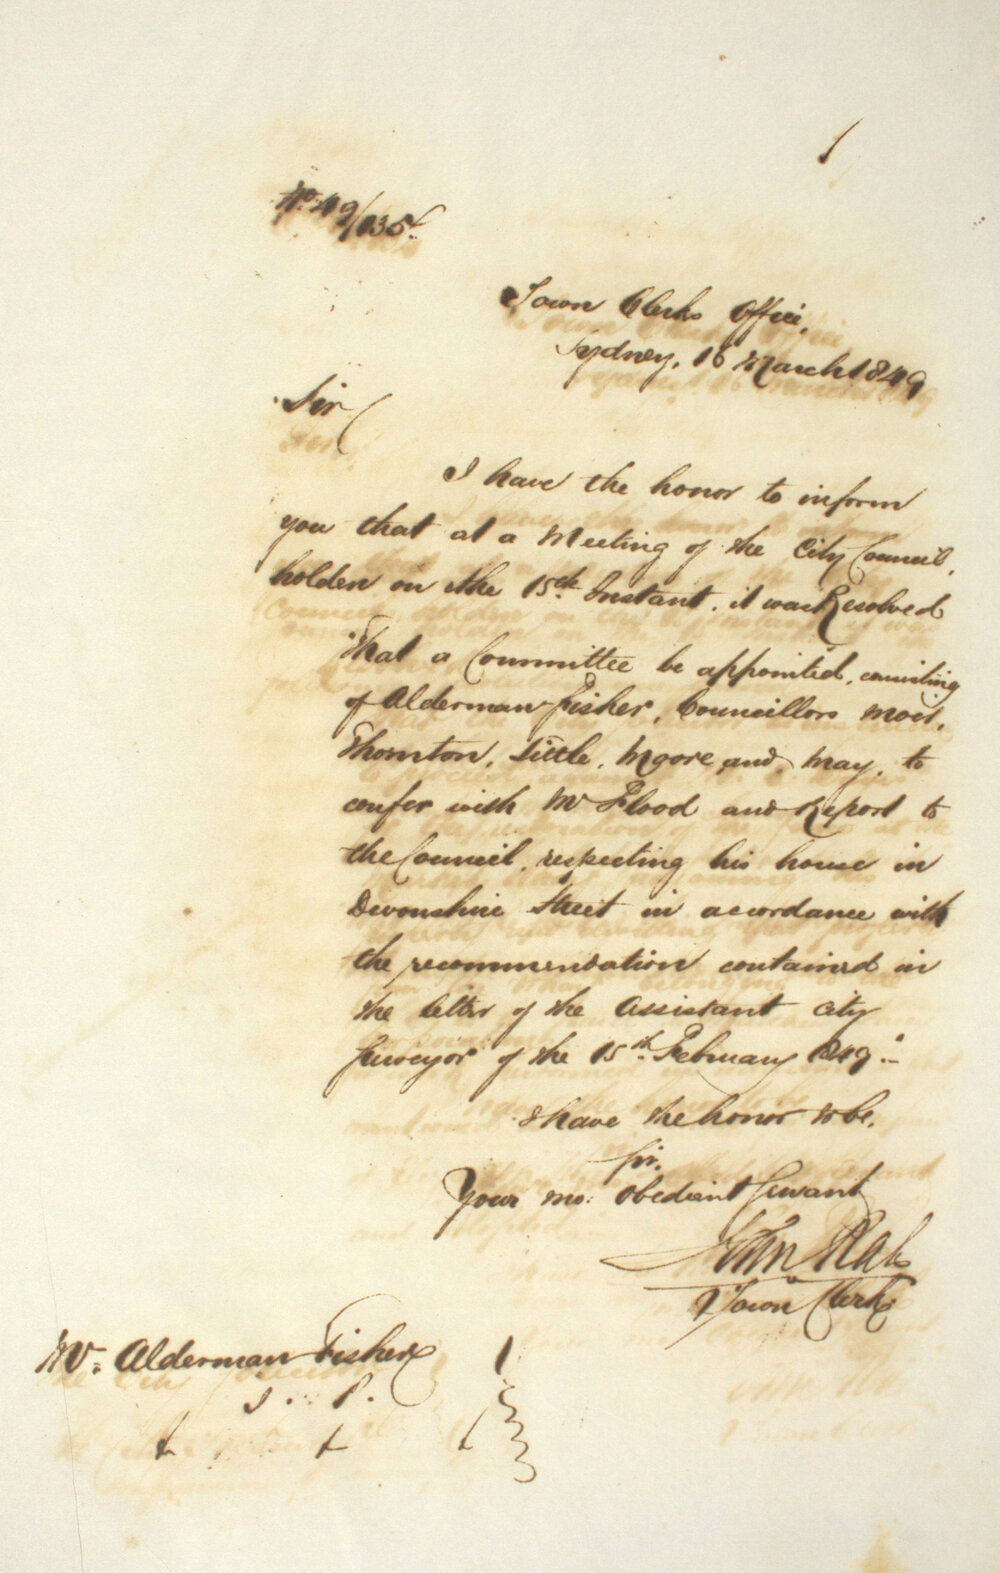 No. 49/135.
Town Clerks Office,
Sydney, 16 March 1849
Sir
I have the honor to inform
you that at a Meeting of the City Council,
holden on the 15th Instant, it was Resolved
"That a Committee be appointed, consisting
of Alderman Fisher, Councillors
Thornton, Little, Moore and May, to
confer with Mr Flood and Report to
the Council, respecting his house in
Devonshire Street in accordance with
the recommendation contained in
the letter of the Assistant City
Surveyor of the 15th February 1849."
I have the honor to be,
Sir,
Your mo: Obedient Servant
John Rae
Town Clerk
Mr. Alderman Fisher
J. P.